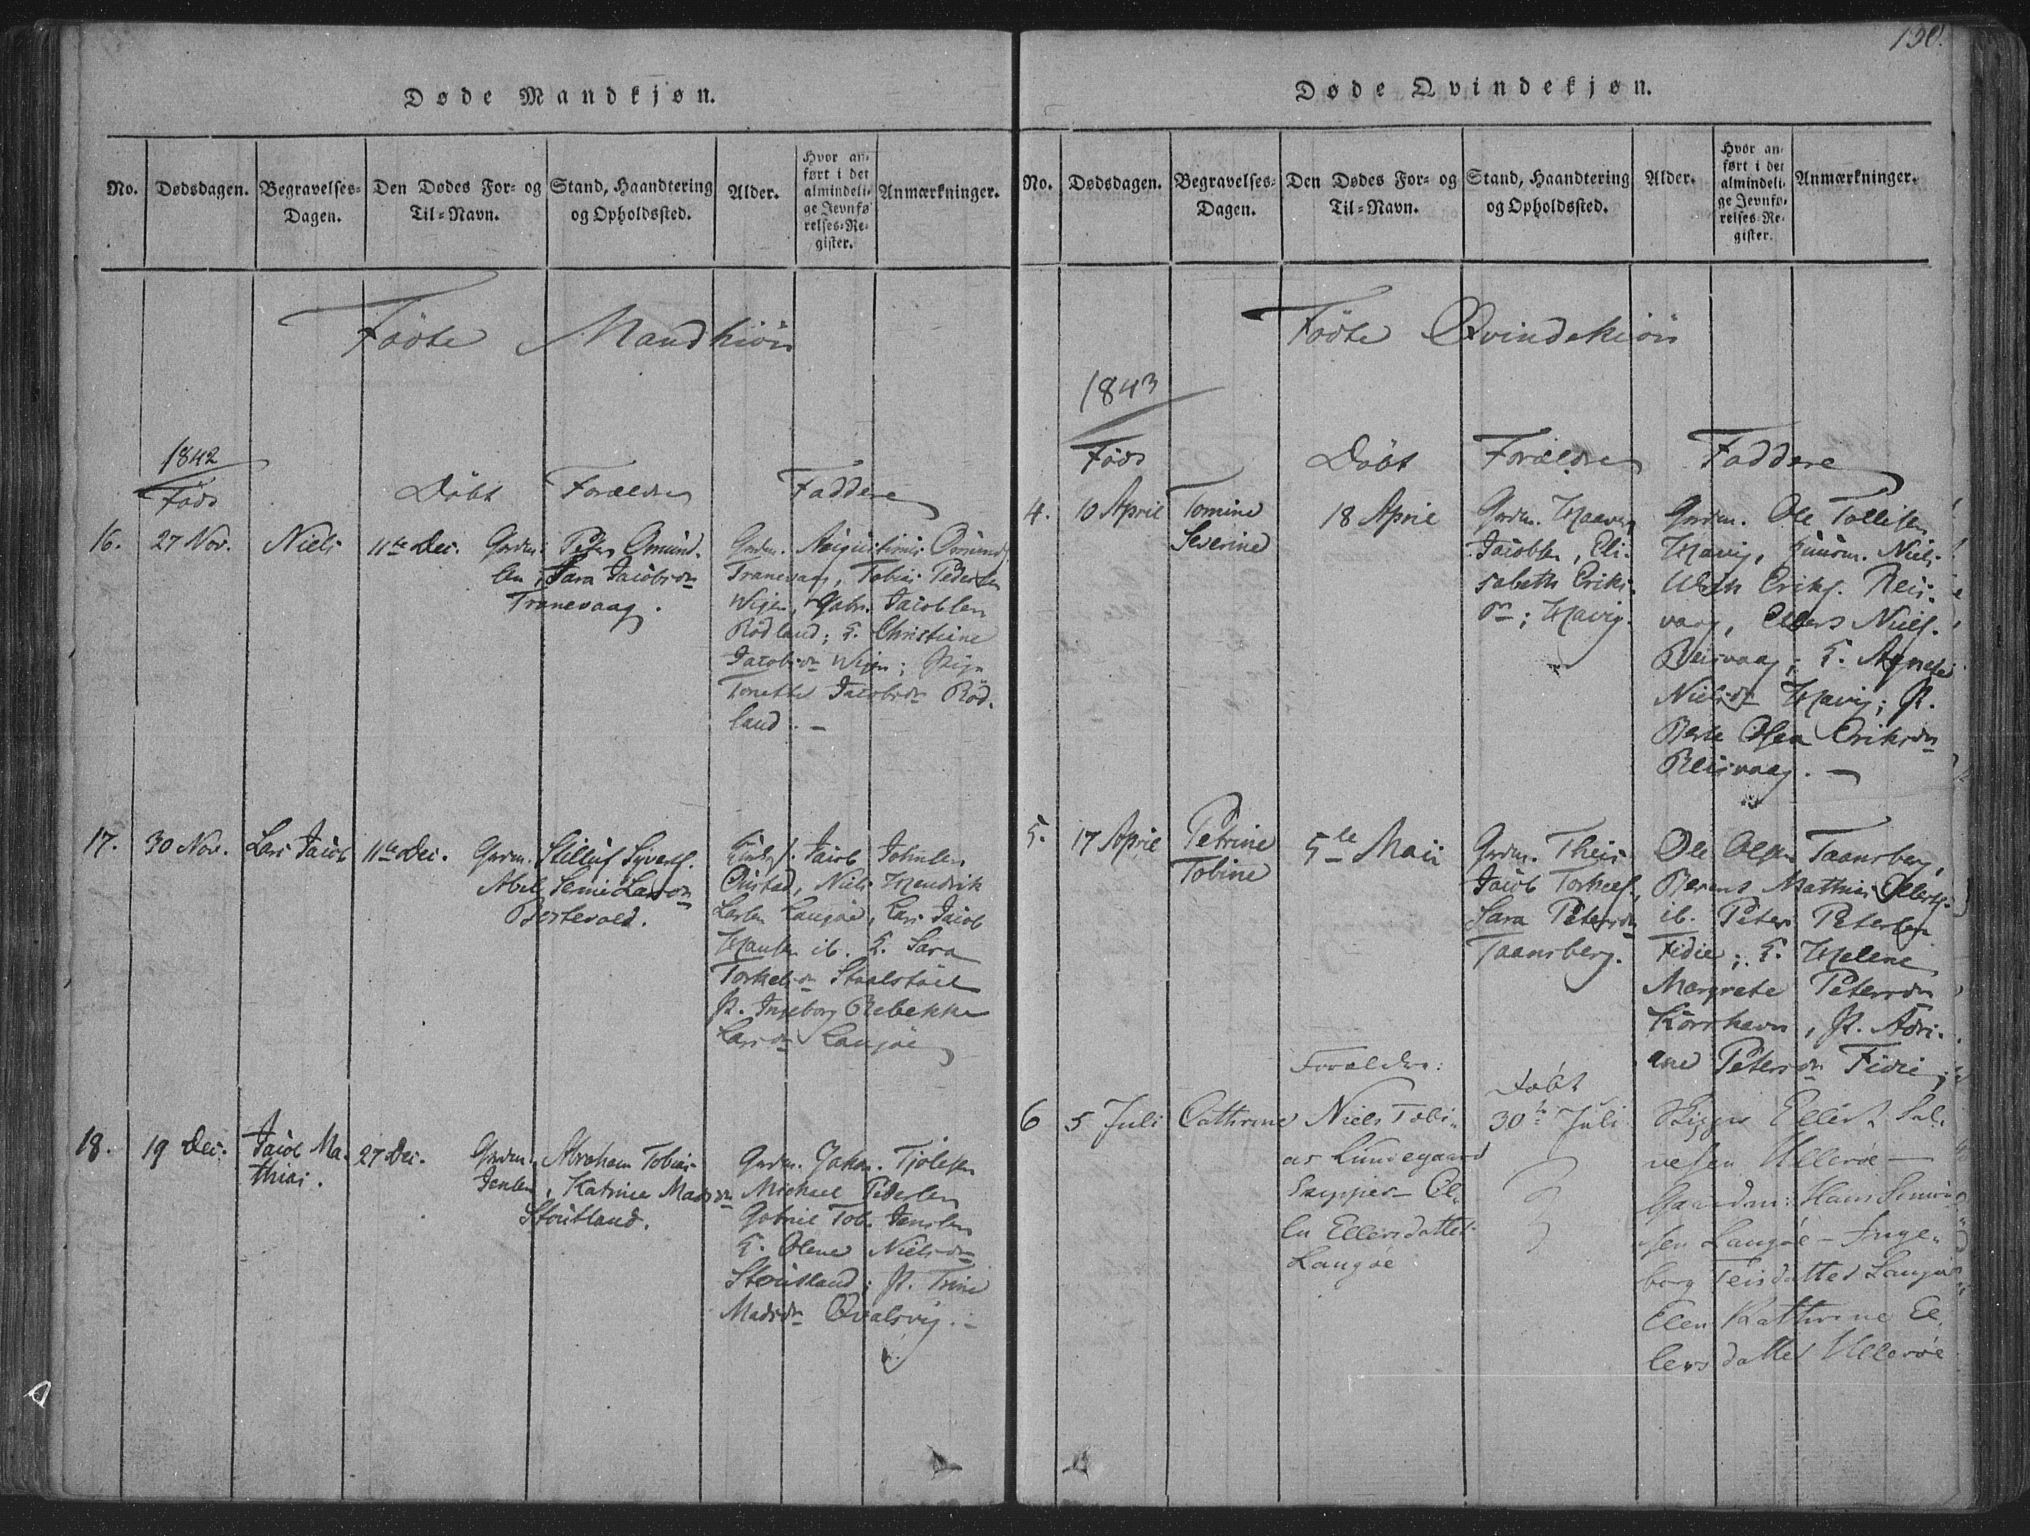 Døde Mandkjøn.
No.
Dødsdagen.
Begravelses-
Dagen.
Den Dødes For- og
Til-Navn.
Stand, Haandtering
og Opholdssted.
Alder.
Hvor an-
ført i det
almindeli-
ge Jevnfø
relses-Re-
gister.
Anmærkninger.
Födte Mandkiön
1842
Föds
Döbt
Forældre
Faddere
16.
27 Nov.
Niels
11te Dec.
Grdm. Peter Omund-
sen, Sara Jacobsdn
Tranevaag.
Grdm. Augustinus Omunds.
Tranevaag, Tobias Pedersen
Wigen, Gabr. Jacobsen
Rödland; K. Christine
Jacobsdn Wigen; P.
Tonette Jacobsdn Röd-
land. —
17.
30 Nov.
Lars Jacob
11te Dec.
Grdm. Syverts.
Abel Larsdn
Jacob Johnsen
Niels Hendrik
Larsen Langöe, Lars Jacob
Hansen ib. K. Sara
Torkelsdn
P. Ingeborg Rebekke
Larsdn Langöe
18.
19 Dec.
Jacob Ma-
thias.
27 Dec.
Grdm. Abraham Tobias
Jensen, Katrine Madsdn
Stousland.
Grdm. Jakob Tjölsen
Michael Pedersen
Gabriel Tob. Jensen
K. Olene Nielsdn
Stousland; P. Trine
Madsdn Qvalsvig. —
150.
Døde Qvindekjøn.
No.
Dødsdagen.
Begravelses-
Dagen.
Den Dødes For- og
Til-Navn.
Stand, Haandtering
og Opholdssted.
Alder.
Hvor an-
ført i det
almindeli-
ge Jevnfø-
relses-Re-
gister.
Anmærkninger.
Födte Qvindekiön
1843
Föds
Döbt
Forældre
Faddere
4.
10 April
Tomine
Severine
18 April
Grdm. Haaver
Jacobsen, Eli-
sabeth Eriks-
dn; Havig.
Grdm. Ole Tollisen
Havig, Huusm. Niels
Eriks. Reis-
vaag, Ellers Niels.
Reisvaag; K. Agnete
Nielsdn Havig; P.
Berte Olea Eriksdn
Reisvaag. —
5.
17 April
Petrine
Tobine
5te Maii
Grdm. Theis
Jacob Torkels.
Sara Petersdn
Taansberg.
Ole Olsen Taansberg,
Berens Mathias Ellerts.
ib. Peter Petersen
Fidie; K. Helene
Margrete Petersdn
Korshavn, P. Adri-
ane Petersdn Fidie;
Forældre:
Döbt
6
5 Juli
Cathrine
Niels Tobi-
as Lundegaard
Skipper — El-
en Ellersdatter
Langöe
30te Juli
Skipper Ellert Sal-
vesen Ullerøe —
Gaardm: Hans Simon-
sen Langøe — Inge-
borg Teisdatter Langøe
Elen Kathrine El-
lersdatter Ullerøe